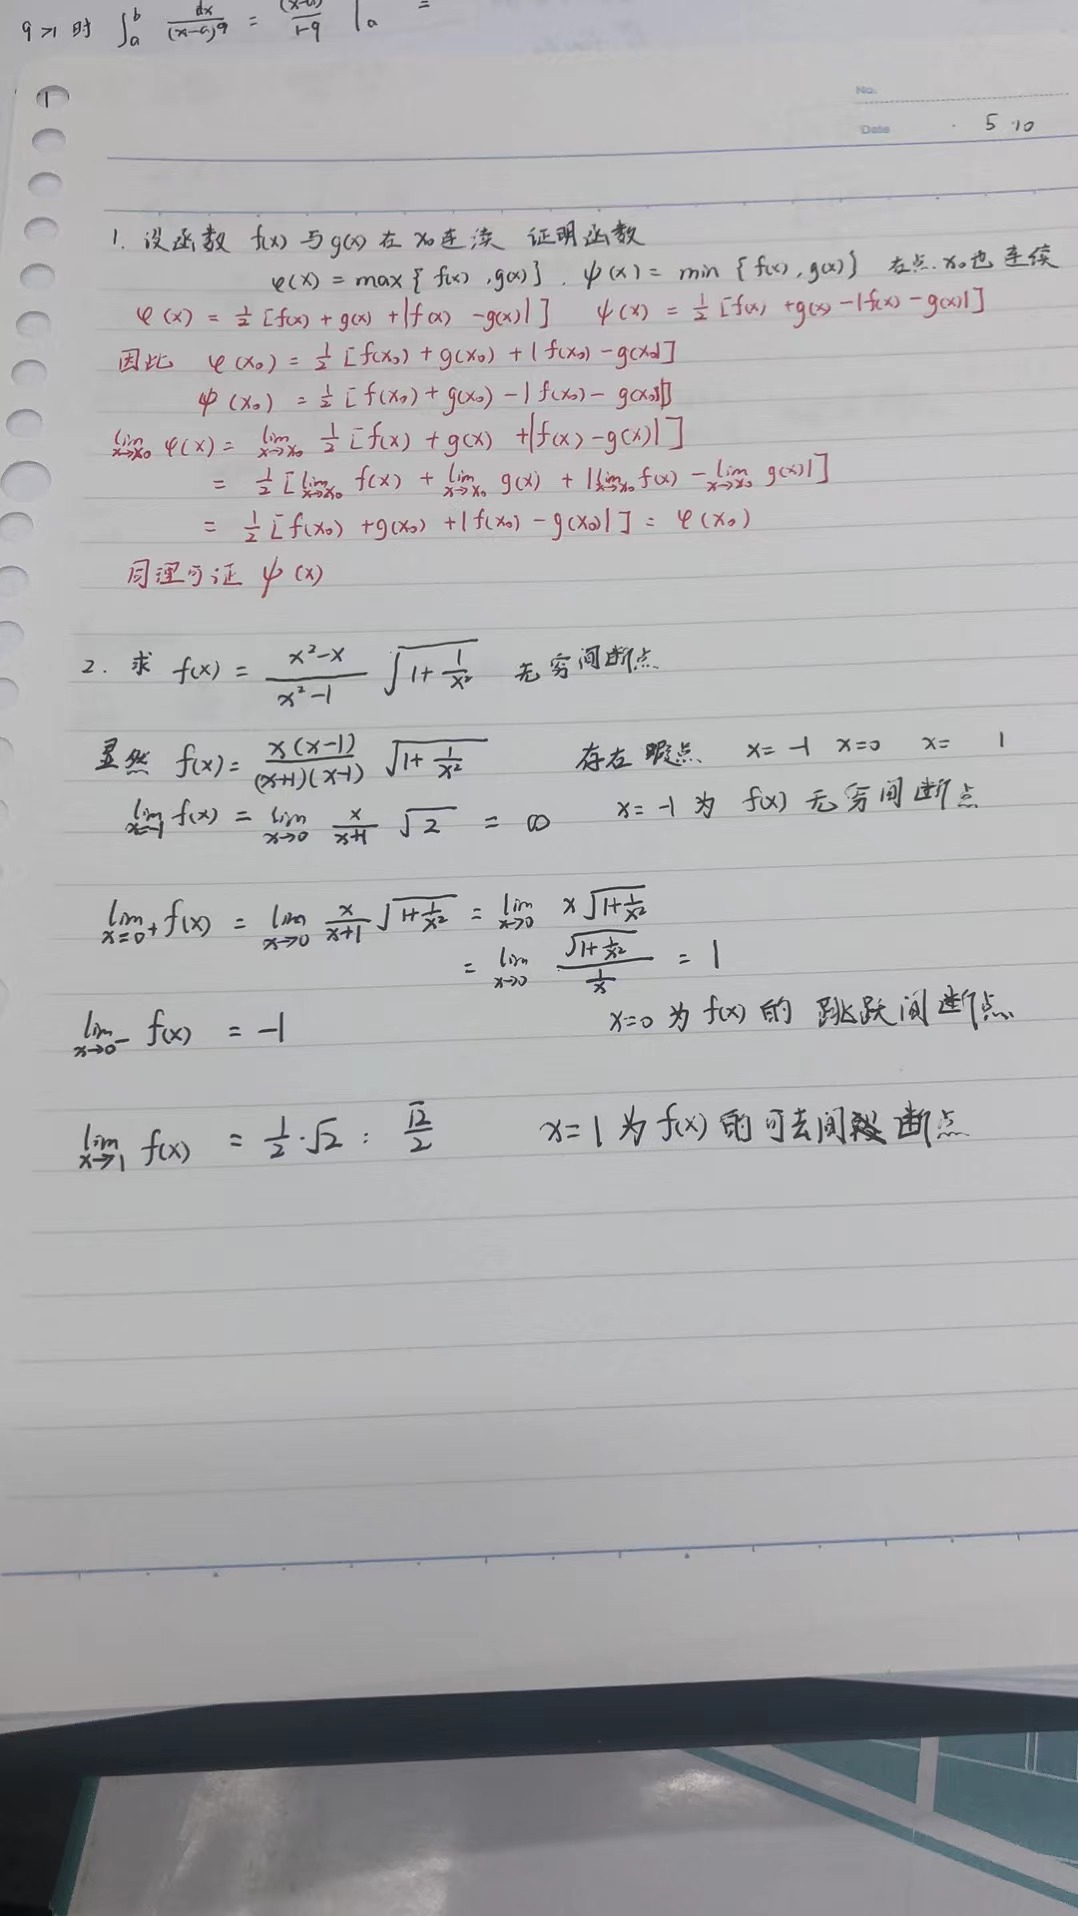 q>1 时 ∫_a^b dx/(x-a)^q = (x-a)/(1-q) |_a =
No.
Date 5.10
1. 设函数 f(x) 与 g(x) 在 x₀ 连续 证明函数
φ(x) = max{ f(x), g(x)}, ψ(x) = min {f(x), g(x)} 在点 x₀ 也连续
φ(x) = 1/2 [f(x) + g(x) + |f(x) - g(x)|] ψ(x) = 1/2 [f(x) + g(x) - |f(x) - g(x)|]
因此 φ(x₀) = 1/2 [f(x₀) + g(x₀) + |f(x₀) - g(x₀)|]
ψ(x₀) = 1/2 [f(x₀) + g(x₀) - |f(x₀) - g(x₀)|]
lim_{x→x₀} φ(x) = lim_{x→x₀} 1/2 [f(x) + g(x) + |f(x) - g(x)|]
= 1/2 [lim_{x→x₀} f(x) + lim_{x→x₀} g(x) + |lim_{x→x₀} f(x) - lim_{x→x₀} g(x)|]
= 1/2 [f(x₀) + g(x₀) + |f(x₀) - g(x₀)|] = φ(x₀)
同理可证 ψ(x)
2. 求 f(x) = (x²-x)/(x²-1) √(1+1/x²) 无穷间断点
显然 f(x) = x(x-1)/((x+1)(x-1)) √(1+1/x²) 存在瑕点 x=-1 x=0 x= 1
lim_{x=-1} f(x) = lim_{x→0} x/(x+1) √2 = ∞ x=-1 为 f(x) 无穷间断点
lim_{x=0⁺} f(x) = lim_{x→0} x/(x+1) √(1+1/x²) = lim_{x→0} x√(1+1/x²)
= lim_{x→0} √(1+1/x²)/(1/x) = 1
lim_{x→0⁻} f(x) = -1 x=0 为 f(x) 的 跳跃间断点
lim_{x→1} f(x) = 1/2·√2 : √2/2 x=1 为 f(x) 的可去间断点